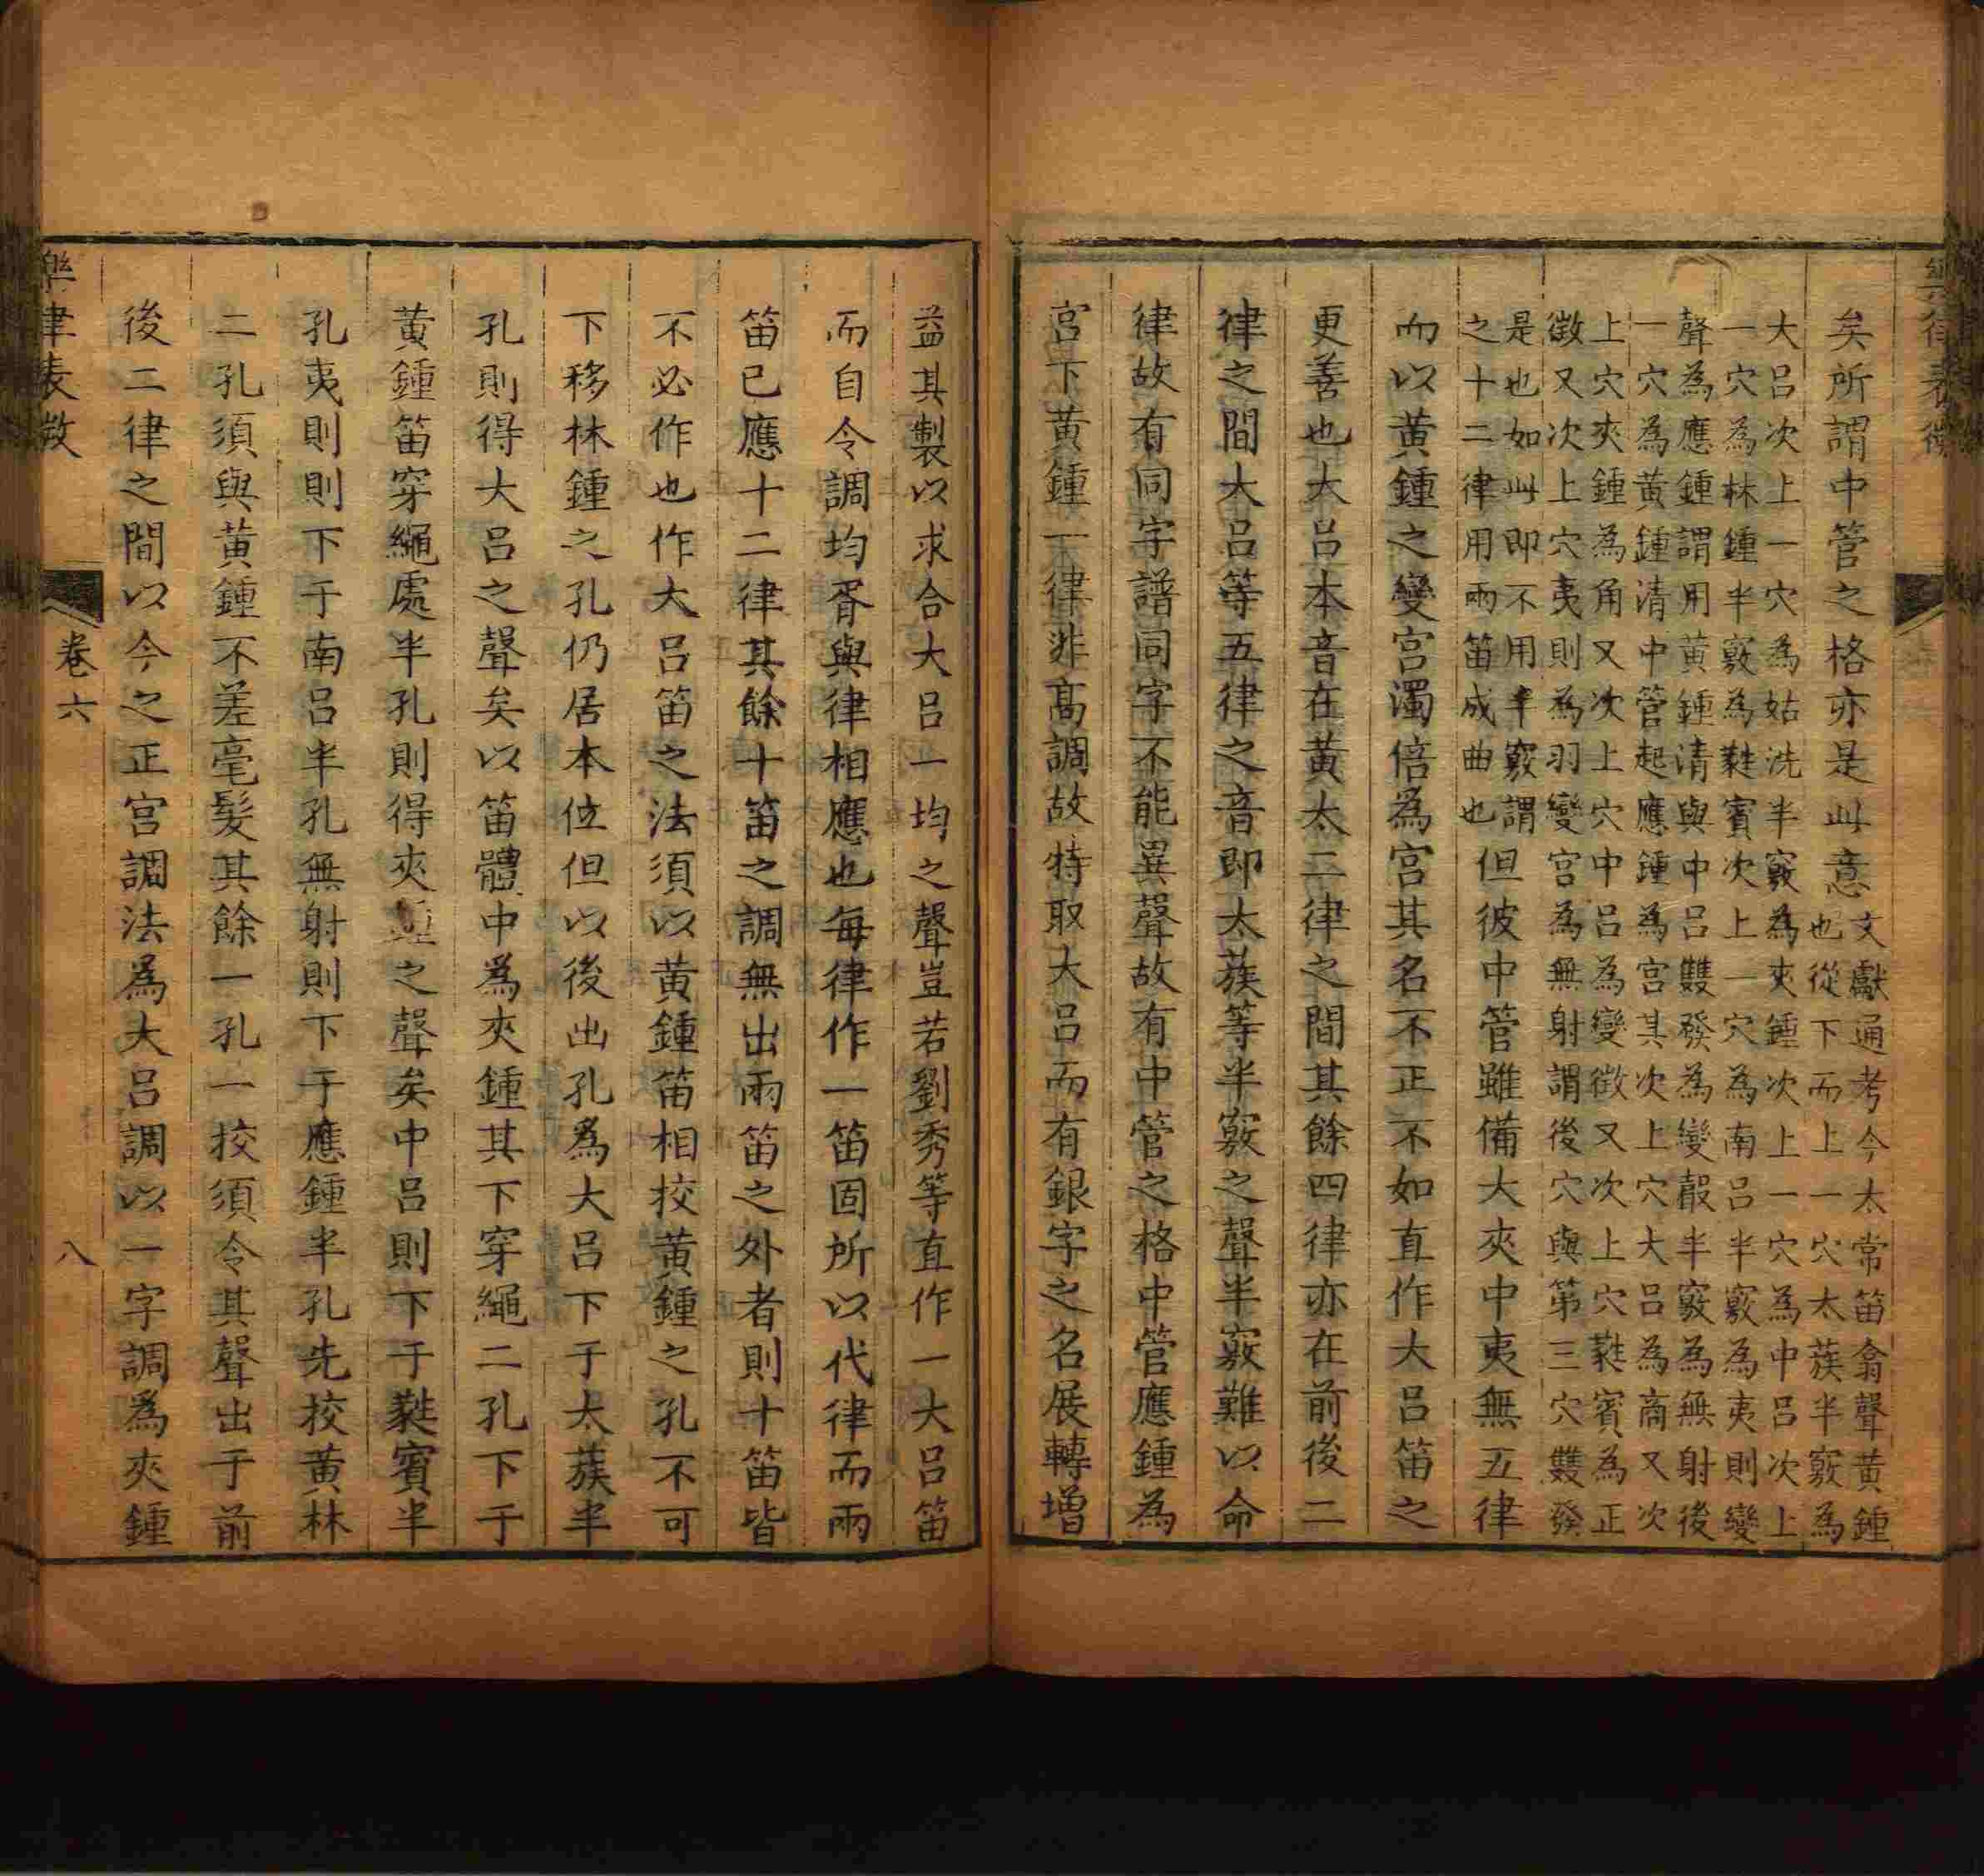 樂律表微
矣所謂中管之格亦是此意
文獻通考今太常笛翕聲黃鍾
也從下而上一穴太蔟半竅為
大呂次上一穴為姑洗半竅為夾鍾次上一穴為中呂次上
一穴為林鍾半竅為蕤賓次上一穴為南呂半竅為夷則變
聲為應鍾謂用黃鍾清與中呂雙發為變聲半竅為無射後
一穴為黃鍾清中管起應鍾為宮其次上穴大呂為商又次
上穴夾鍾為角又次上穴中呂為變徵又次上穴蕤賓為正
徵又次上穴夷則為羽變宮為無射謂後穴與第三穴雙發
是也如此即不用半竅謂
之十二律用兩笛成曲也
但彼中管雖備大夾中夷無五律
而以黃鍾之變宮濁倍為宮其名不正不如直作大呂笛之
更善也大呂本音在黃太二律之間其餘四律亦在前後二
律之間大呂等五律之音即太蔟等半竅之聲半竅難以命
律故有同字譜同字不能異聲故有中管之格中管應鍾為
宮下黃鍾一律非高調故特取大呂而有銀字之名展轉增
益其製以求合大呂一均之聲豈若劉秀等直作一大呂笛
而自令調均胥與律相應也每律作一笛固所以代律而兩
笛已應十二律其餘十笛之調無出兩笛之外者則十笛皆
不必作也作大呂笛之法須以黃鍾笛相挍黃鍾之孔不可
下移林鍾之孔仍居本位但以後出孔為大呂下于太蔟半
孔則得大呂之聲矣以笛體中為夾鍾其下穿繩二孔下于
黃鍾笛穿繩處半孔則得夾之聲矣中呂則下于蕤賓半
孔夷則則下于南呂半孔無射則下于應鍾半孔先挍黃林
二孔須與黃鍾不差毫髮其餘一孔一挍須令其聲出于前
後二律之間以今之正宮調法為大呂調以一字調為夾鍾
樂律表微
卷六
八